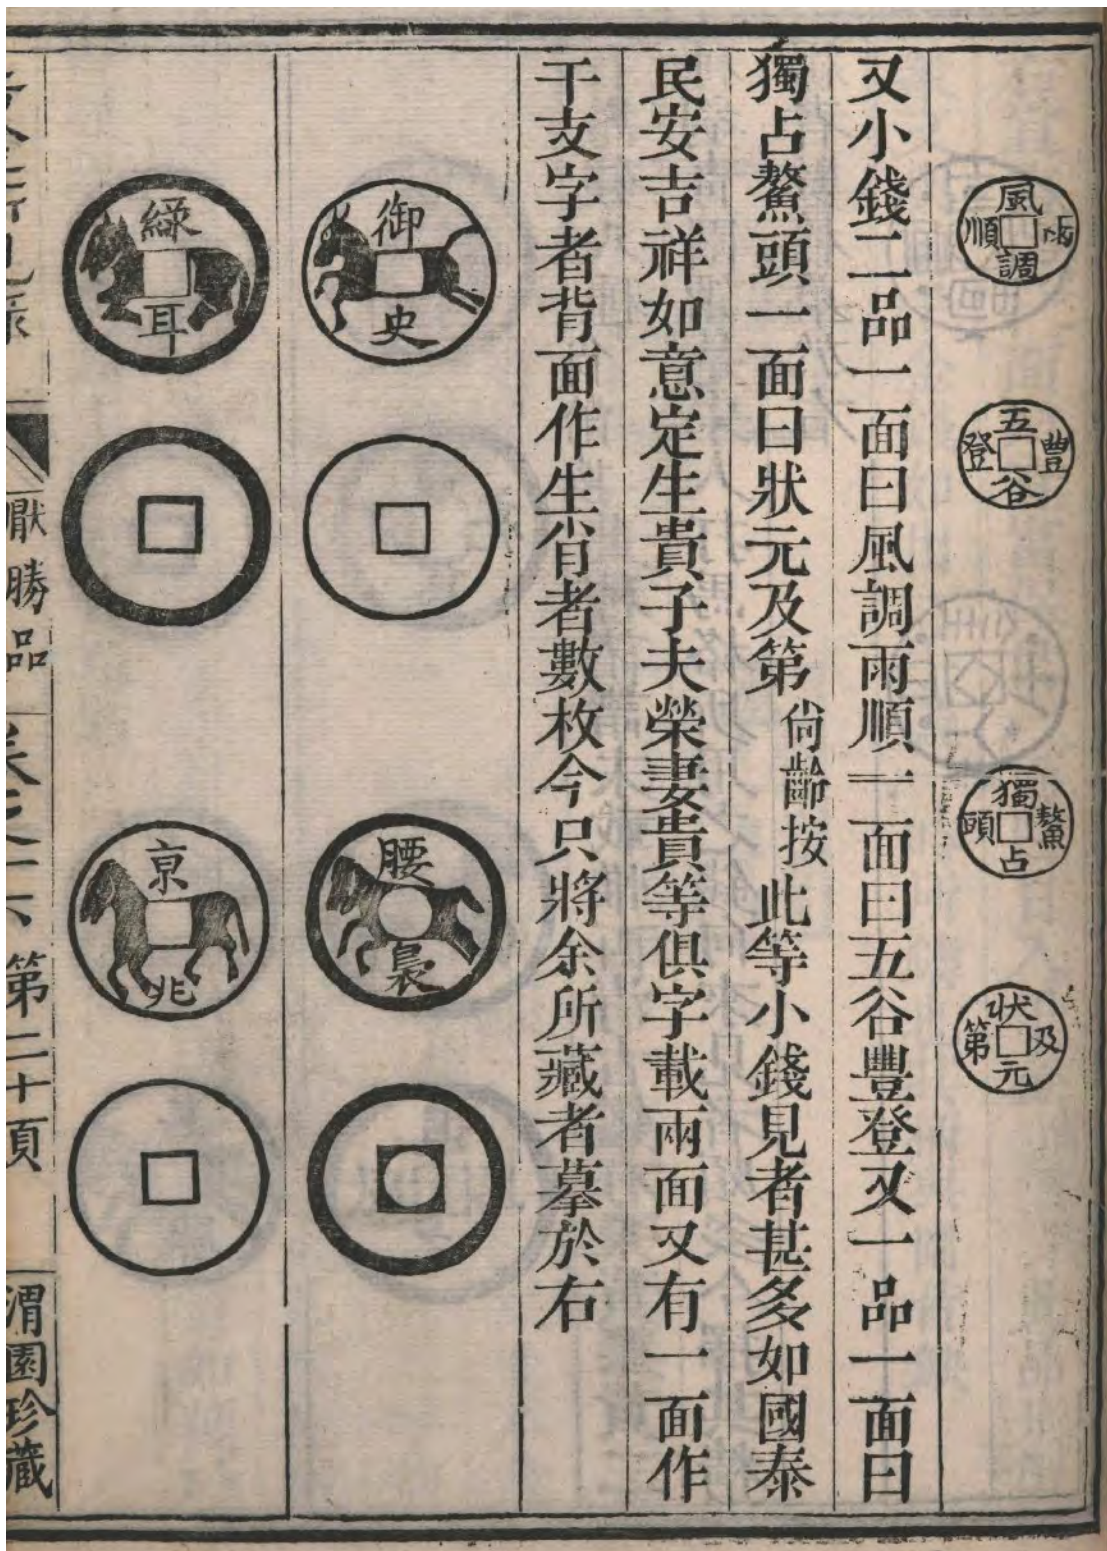 風調雨順
五谷豐登
獨占鰲頭
狀元及第
又小錢二品一面曰風調雨順一面曰五谷豐登又一品一面曰
獨占鰲頭一面曰狀元及第尙齡按此等小錢見者甚多如國泰
民安吉祥如意定生貴子夫榮妻貴等俱字載兩面又有一面作
干支字者背面作生肖者數枚今只將余所藏者摹於右
御史
腰褭
綠耳
京兆
厭勝品
第二十頁
渭園珍藏